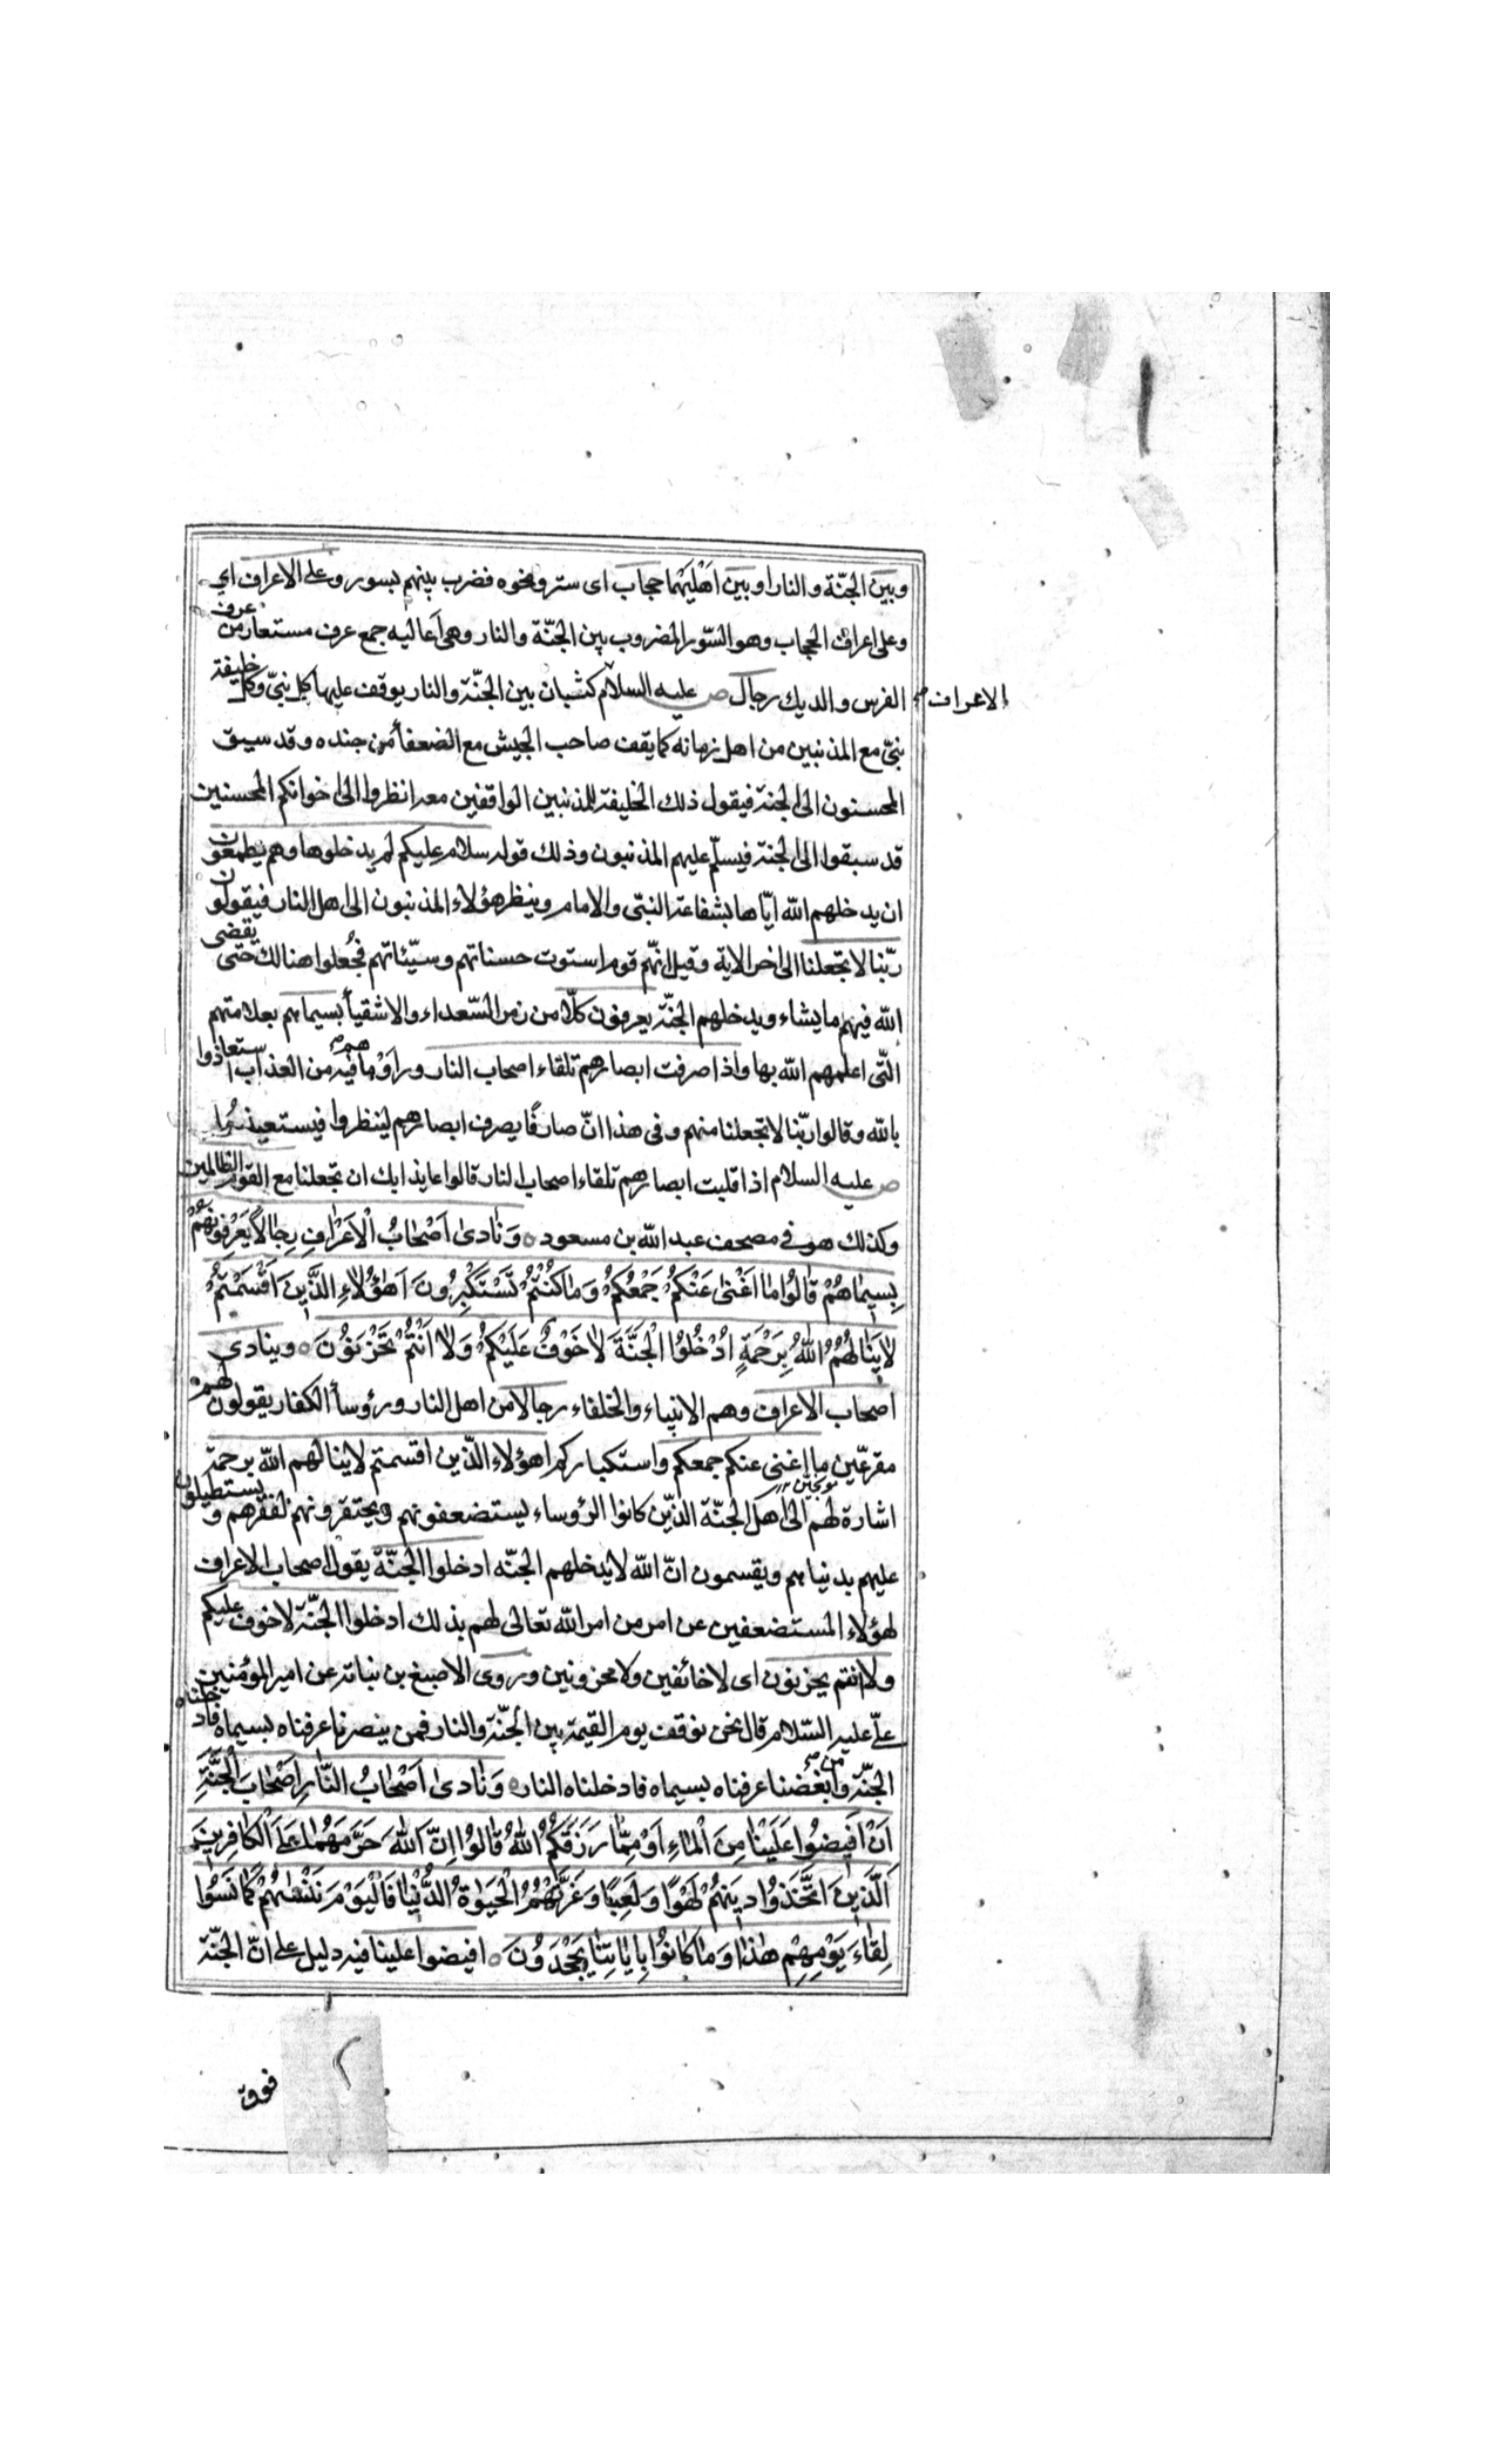 وبين الجنّة والنار او بين اهليهما حجاب اى ستر ونحوه فضرب بينهم بسور وعلى الاعراف اي
وعلى اعراف الحجاب وهو السّور المضروب بين الجنّة والنار وهى اعاليه جمع عرف مستعار من عرف
الفرس والديك رجال ص عليه السلام كثبان بين الجنّة والنار يوقف عليها كل نبيّ وكل خليفة
الاعراف
نبيّ مع المذنبين من اهل زمانه كما يقف صاحب الجيش مع الضعفأ من جنده وقد سيق
المحسنون الى الجنة فيقول ذلك الخليفة للمذنبين الواقفين معه انظروا الى اخوانكم المحسنين
قد سبقوا الى الجنة فيسلّم عليهم المذنبون وذلك قوله سلام عليكم لم يدخلوها وهم يطمعون
ان يدخلهم الله ايّاها بشفاعة النبّى والامام وينظر هؤلاء المذنبون الى اهل النار فيقولون
ربّنا لا تجعلنا الى اخر الاية وقيل انّهم قوم استوت حسناتهم وسيّئاتهم فجُعلوا هنالك حتى يقضى
الله فيهم ما يشاء ويدخلهم الجنّة يعرفون كلّا من زمر السّعداء والاشقيأ بسيماهم بعلامتهم
التّى اعلمهم الله بها واذا صرفت ابصارهم تلقاء اصحاب النار وراَوْا ما هم فيه من العذاب استعاذوا
بالله وقالوا ربّنا لا تجعلنا منهم وفى هذا انّ صارفًا يصرف ابصارهم لينظروا فيستعيذوا
ص عليه السلام اذا قلبت ابصارهم تلقاء اصحاب النار قالوا عايذا بك ان تجعلنا مع القوم الظالمين
وكذلك هو في مصحف عبد الله بن مسعود ٥ وَنادىٰ اَصْحٰابُ الْاَعْرٰافِ رِجٰالاً يَعْرِفُونَهُمْ
بِسيمٰاهُمْ قٰالُوا مٰا اَغْنىٰ عَنْكُمْ جَمْعُكُمْ وَمٰا كُنْتُمْ تَسْتَكْبِرُونَ اَهٰؤُلاٰءِ الَّذينَ اَقْسَمْتُمْ
لاٰ يَنٰالُهُمُ اللهُ بِرَحْمَةٍ اُدْخُلُوا الْجَنَّةَ لاٰ خَوْفٌ عَلَيْكُمْ وَلاٰ اَنْتُمْ تَحْزَنوُنَ ٥ وينادى
اصحاب الاعراف وهم الانبياء والخلفاء رجالا من اهل النار ورؤسأ الكفار يقولون لهم
مقرعّين ما اغنى عنكم جمعكم واستكباركم اهؤلاء الذّين اقسمتم لا ينالهم الله برحمة
اشارة لهم الى اهل الجنّة الذّين كانوا الرؤساء يستضعفونهم ويحتقرونهم لفقرهم ويستطيلون
عليهم بدنياهم ويقسمون انّ الله لا يدخلهم الجنّه ادخلوا الجنّة يقول اصحاب الاعراف
لهؤلاء المستضعفين عن امر من امر الله تعالى لهم بذلك ادخلوا الجنّة لا خوف عليكم
ولا انتم يحزنون اى لا خائفين ولا محزونين وروى الاصبغ بن نباتة عن امير المؤمنين
علّى عليه السّلام قال نحن نوقف يوم القيمة بين الجنّة والنار فمن ينصرنا عرفناه بسيماه فادخلناه
الجنّة ومن ابغضنا عرفناه بسيماه فادخلناه النار ٥ وَنٰادىٰ اَصْحٰابُ النّٰارِ اَصْحٰابَ الْجَنَّةِ
اَنْ اَفيضُوا عَلَيْنٰا مِنَ الْمٰاءِ اَوْ مِمّٰا رَزَقَكُمُ اللهُ قٰالُوا اِنَّ اللهَ حَرَّمَهُمٰا عَلَى الْكٰافِرينَ
اَلَّذينَ اتَّخَذوُا دينَهُمْ لَهْوًا وَلَعِبًا وَغَرَّتْهُمُ الْحَيٰوةُ الدُّنْيٰا فَالْيَوْمَ نَنْسٰيهُمْ كَمٰا نَسُوا
لِقٰاءَ يَوْمِهِمْ هٰذٰا وَمٰا كٰانُوا بِاٰيٰاتِنٰا يَجْحَدوُنَ ٥ افيضوا علينا فيه دليل على انّ الجنّة
فوق